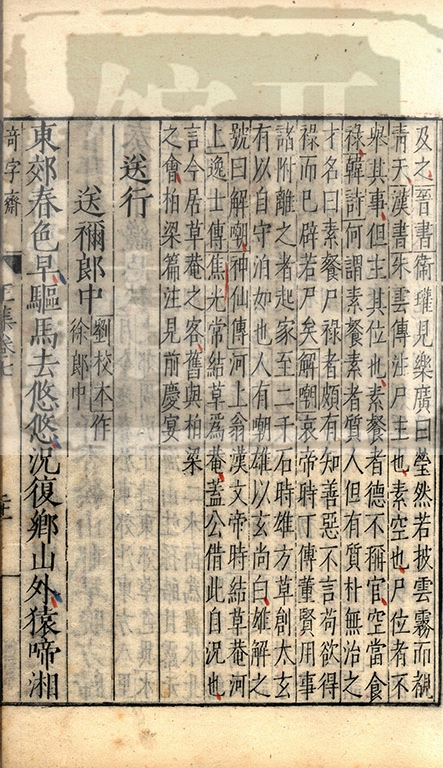 及之晉書衛瓘見樂廣曰瑩然若披雲霧而覩
青天漢書朱雲傳注尸主也素空也尸位者不
舉其事但主其位也素餐者德不稱官空當食
祿韓詩何謂素餐素者質人但有質朴無治之
才名曰素餐尸祿者頗有知善惡不言苟欲得
祿而已辟若尸矣解嘲哀帝時丁傳董賢用事
諸附離之者起家至二千石時雄方草創太玄
有以自守泊如也人有嘲雄以玄尚白雄解之
號曰解嘲神仙傳河上翁漢文帝時結草菴河
上逸士傳焦光常結草為菴蓋公借此自況也
言今居草菴之客舊與柏梁
之會柏梁篇注見前慶宴
送行
送禰郎中
劉校本作
徐郎中
東郊春色早驅馬去悠悠況復鄉山外猿啼湘
奇字齋